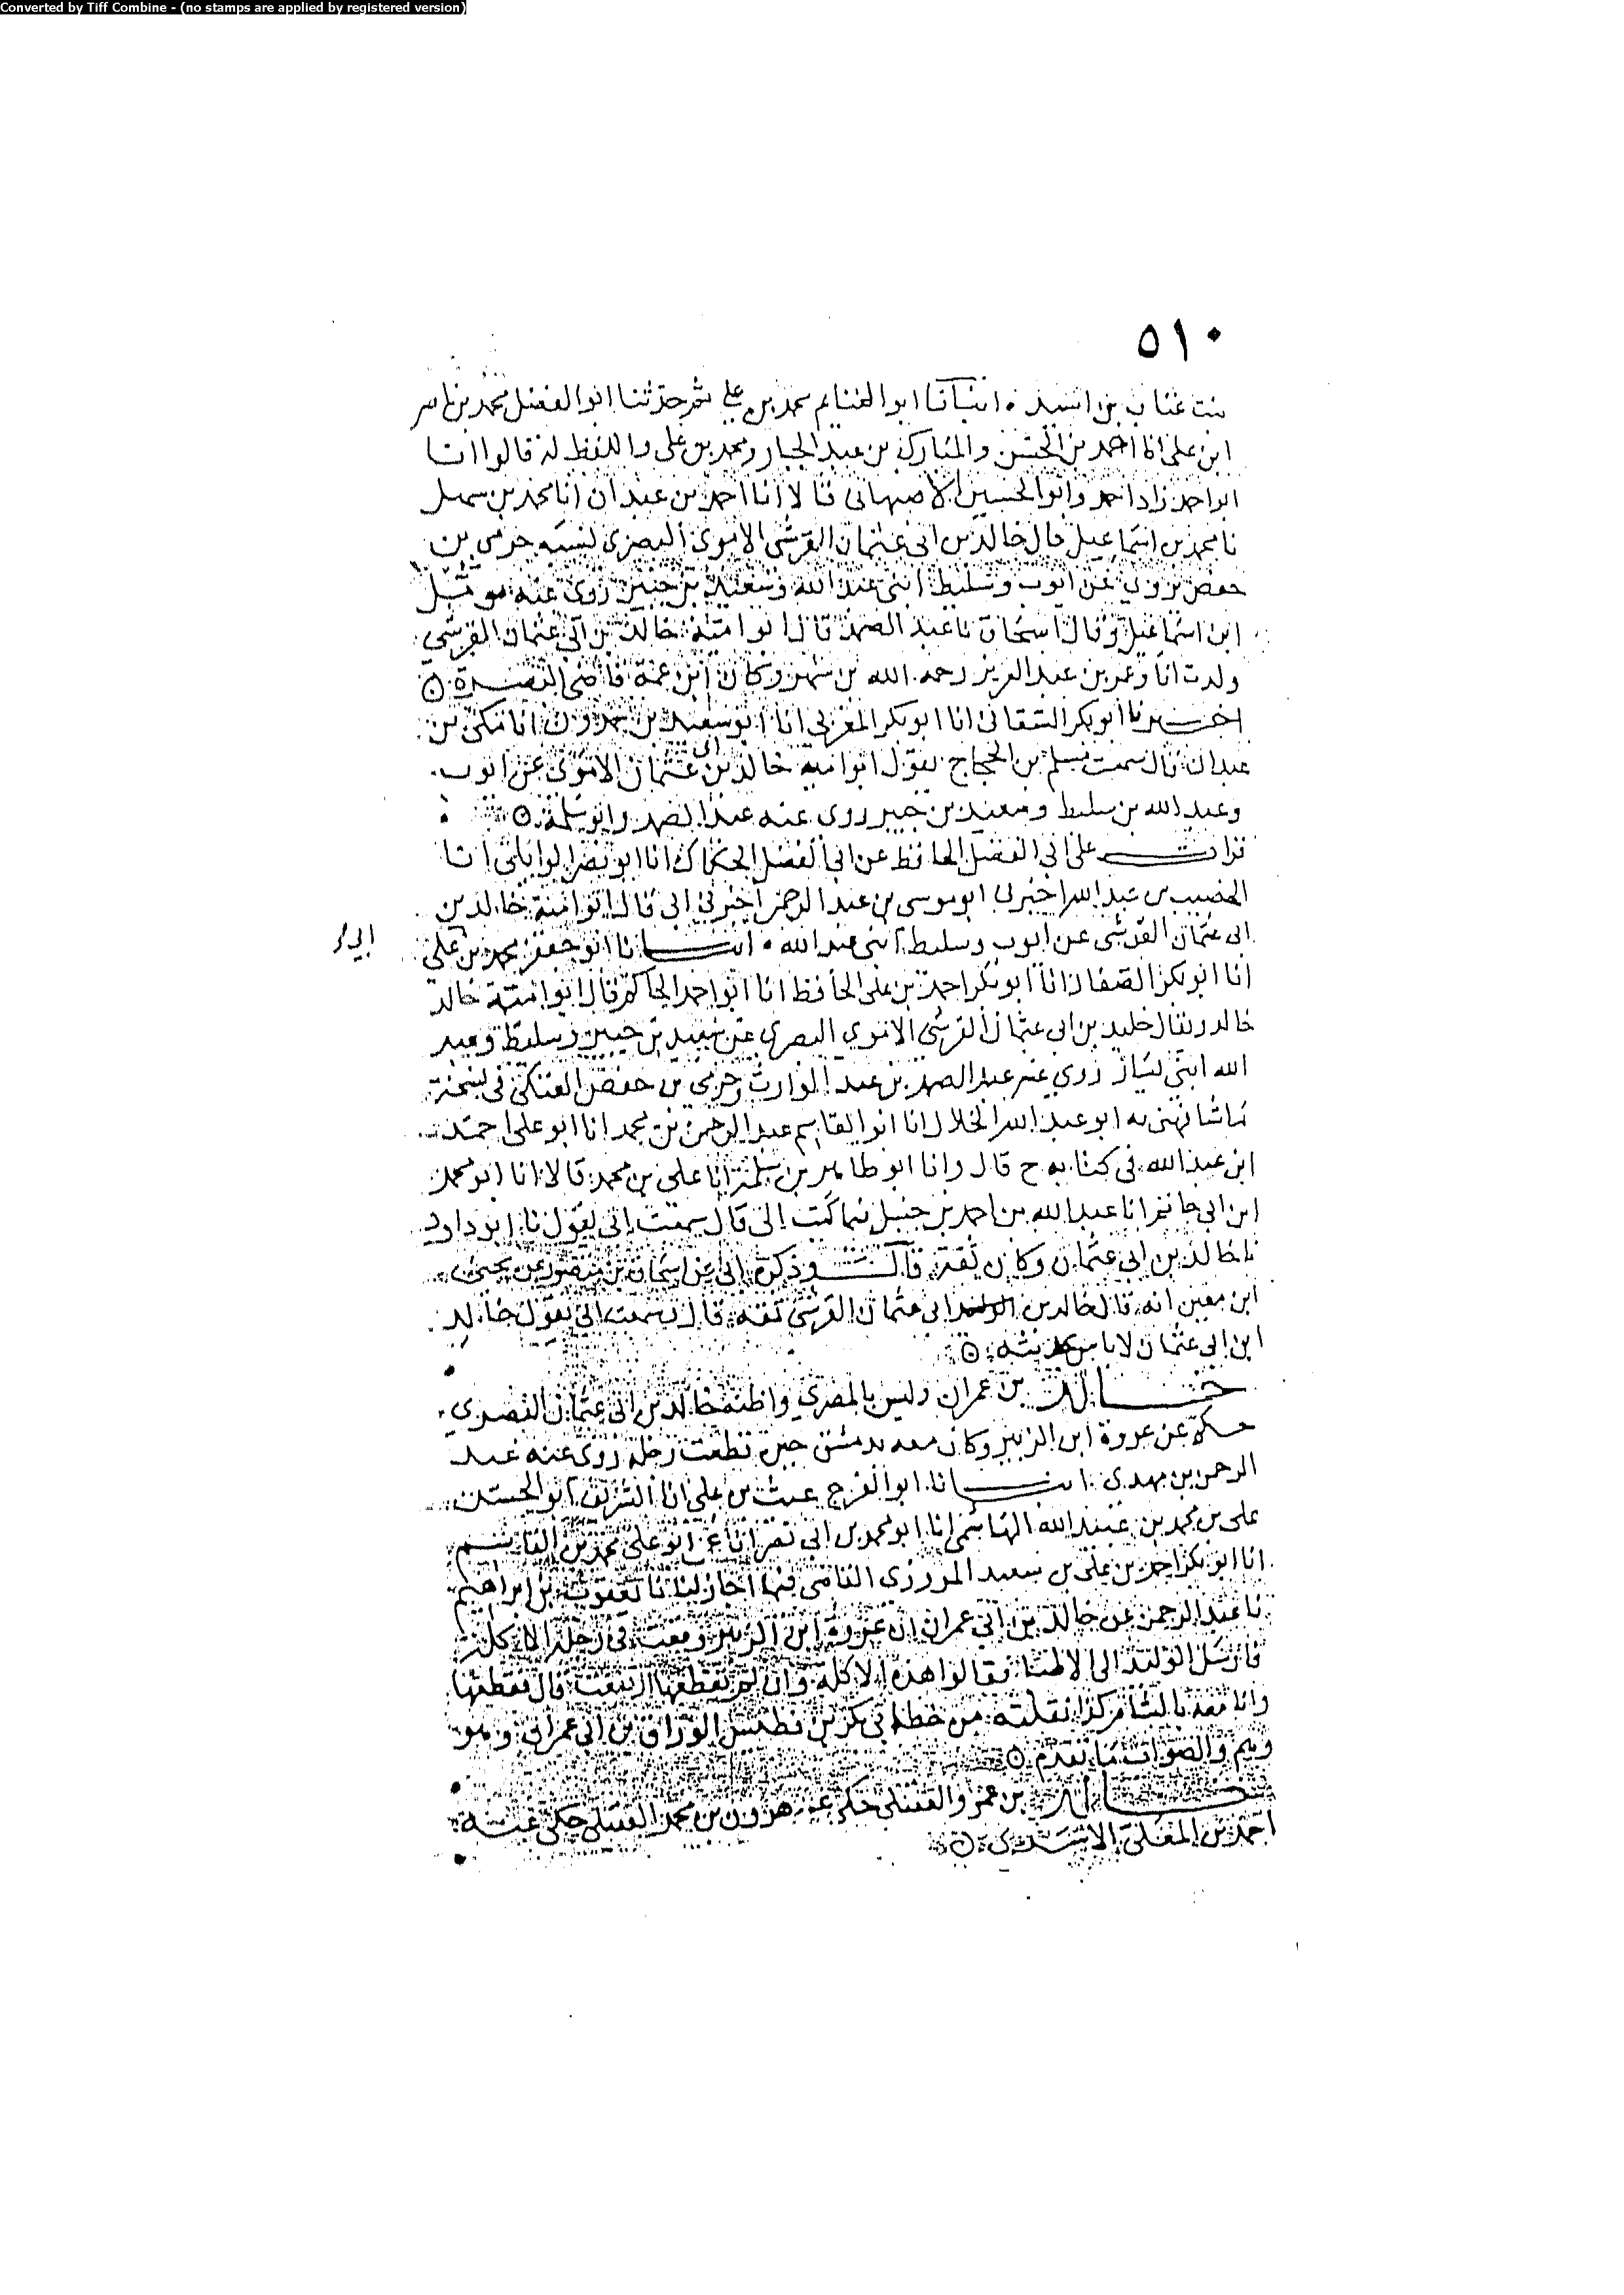 Converted by Tiff Combine - (no stamps are applied by registered version)
٥١٠
بنت عتاب بن اسيد ٥ انبأنا ابو الغنايم محمد بن علي ثم حدثنا ابو الفضل محمد بن ناصر
ابن على انا احمد بن الحسن والمبارك بن عبد الجبار ومحمد بن على واللفظ له قالوا انا
ابو احمد زاد احمد وابو الحسين الاصبهانى قالا انا احمد بن عبدان انا محمد بن سهل
نا محمد بن اسماعيل قال خالد بن ابى عثمان القرشى الاموى البصرى نسبه حرمى بن
حفص يروى عن ايوب وسليط ابنى عبد الله وسعيد بن جبير روى عنه موسى
ابن اسماعيل وقال اسحاق نا عبد الصمد قال ابو امية خالد بن ابى عثمان القرشي
ولدت انا وعمر بن عبد العزيز رحمه الله من شهر وكان ابن عمة قاضى البصرة ٥
اخبرنا ابو بكر الشقانى انا ابو بكر المغربى انا ابو سعيد بن حمدون انا مكى بن
عبدان قال سمعت مسلم بن الحجاج يقول ابو امية خالد بن ابى عثمان الاموى عن ايوب
وعبد الله بن سليط وسعيد بن جبير روى عنه عبد الصمد وابو سلمة ٥
قرات على ابى الفضل الحافظ عن ابى الفضل الحكاك انا ابو نصر الوايلى انا
الخصيب بن عبد الله اخبرنى ابو موسى بن عبد الرحمن اخبرنى ابى قال ابو امية خالد بن
ابى عثمان القرشى عن ايوب وسليط ابنى عبد الله ٥ انبانا ابو جعفر محمد بن ابى على
انا ابو بكر الصفار انا ابو بكر احمد بن على الحافظ انا ابو احمد الحاكم قال ابو امية خالد
خالد ويقال خليد بن ابى عثمان القرشى الاموي البصرى عن سعيد بن جبير وسليط وعبد
الله ابنى يسار روى عنه عبد الصمد بن عبد الوارث وحرمى بن حفص العتكى فى نسخة
ما شافهنى به ابو عبد الله الخلال انا ابو القاسم عبد الرحمن بن محمد انا ابو على احمد
ابن عبد الله فى كتابه ح قال وانا ابو طاهر بن سلمة انا على بن محمد قالا انا ابو محمد
ابن ابى حاتم انا عبد الله بن احمد بن حنبل فيما كتب الى قال سمعت ابى يقول نا ابو داود
نا خالد بن ابى عثمان وكان ثقة قال وذكره ابى عن اسحاق بن منصور عن يحيى
ابن معين انه قال خالد بن ابى عثمان القرشى ثقة قال وسمعت ابى يقول خالد
ابن ابى عثمان لا باس بحديثه ٥
خالد بن عمران وليس بالمصري واظنه خالد بن ابى عثمان البصرى
حكى عن عروة ابن الزبير وكان معه بدمشق حين قطعت رجله روى عنه عبد
الرحمن بن مهدى انبانا ابو الفرج غيث بن على انا الشريف ابو الحسن
على بن محمد بن عبيد الله الهاشمى انا ابو محمد بن ابى نصر انا ابو على محمد بن القاسم
انا ابو بكر احمد بن على بن سعيد المروزى القاضى فيما اجاز لنا نا يعقوب بن ابراهيم
نا عبد الرحمن عن خالد بن ابى عمران ان عروة ابن الزبير وقعت فى رجله الاكلة
فارسل الوليد الى الاطبا فقالوا هذه الاكلة وان لم تقطعها قال فقطعها
وانا معه بالشام كذا نقلته من خط ابى بكر بن فطيس الوراق بن ابى عمران وهو
وهم والصواب ما تقدم ٥
خالد بن عمرو العقيلى حكى عنه هرون بن محمد العقيلى حكى عنه
احمد بن المعلى الاسدى ٥